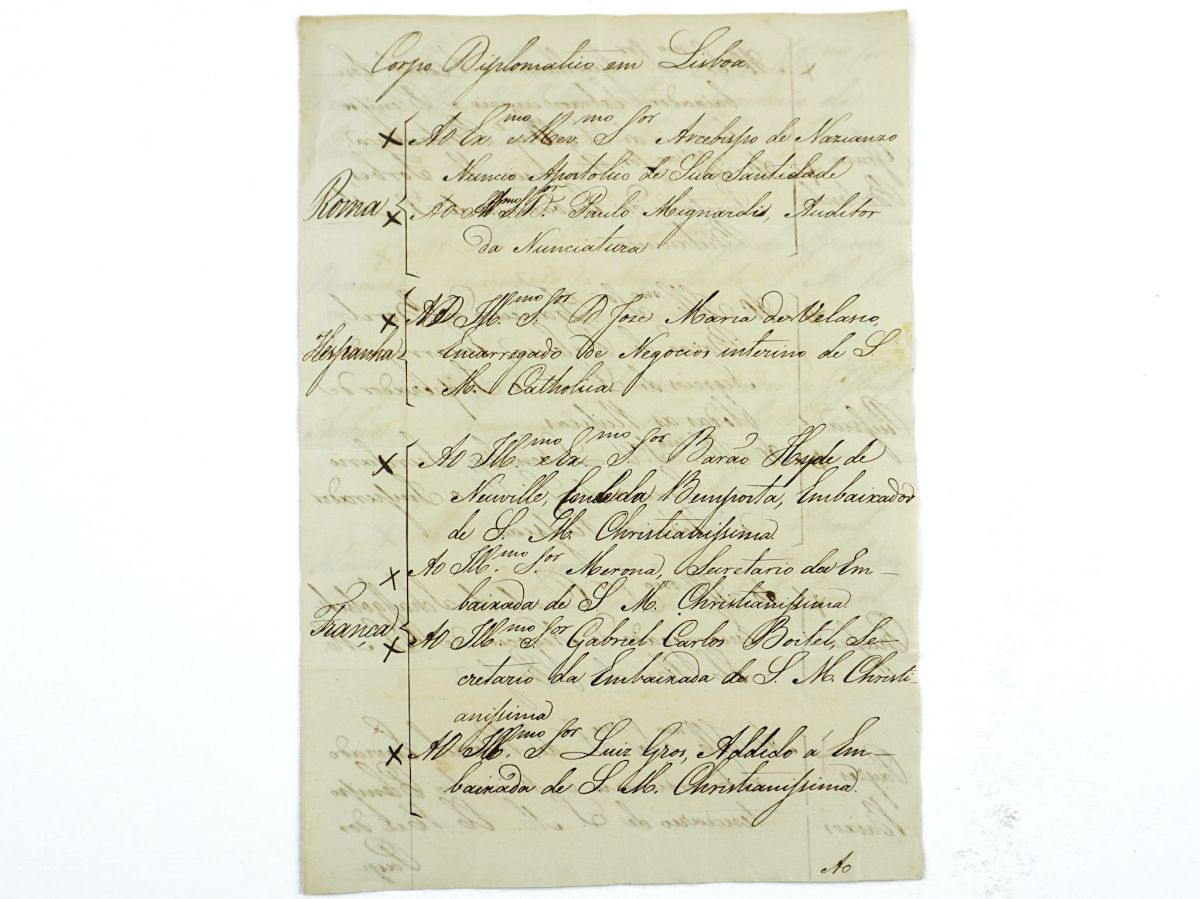 Corpo Diplomatico em Lisboa.
X Ao Ex.mo e Rev.mo S.or Arcebispo de Nazianzo
Nuncio Apostolico de Sua Santidade
Roma
X Ao Ill.mo S.or D. Paulo Mignardi, Auditor
da Nunciatura
X Ao Ill.mo S.or D Joze Maria de Velasco,
Hespanha
Encarregado de Negocios interino de S.
M. Catholica.
X Ao Ill.mo e Ex.mo S.or Barão Hyde de
Neuville, Conde da Bemposta, Embaixador
de S. M. Christianissima.
X Ao Ill.mo S.or Merona, Secretario da Em-
baixada de S. M. Christianissima.
França
X Ao Ill.mo S.or Gabriel Carlos Se-
cretario da Embaixada de S. M. Christi-
anissima
X Ao Ill.mo S.or Luiz Gros, Addido á Em-
baixada de S. M. Christianissima.
Ao